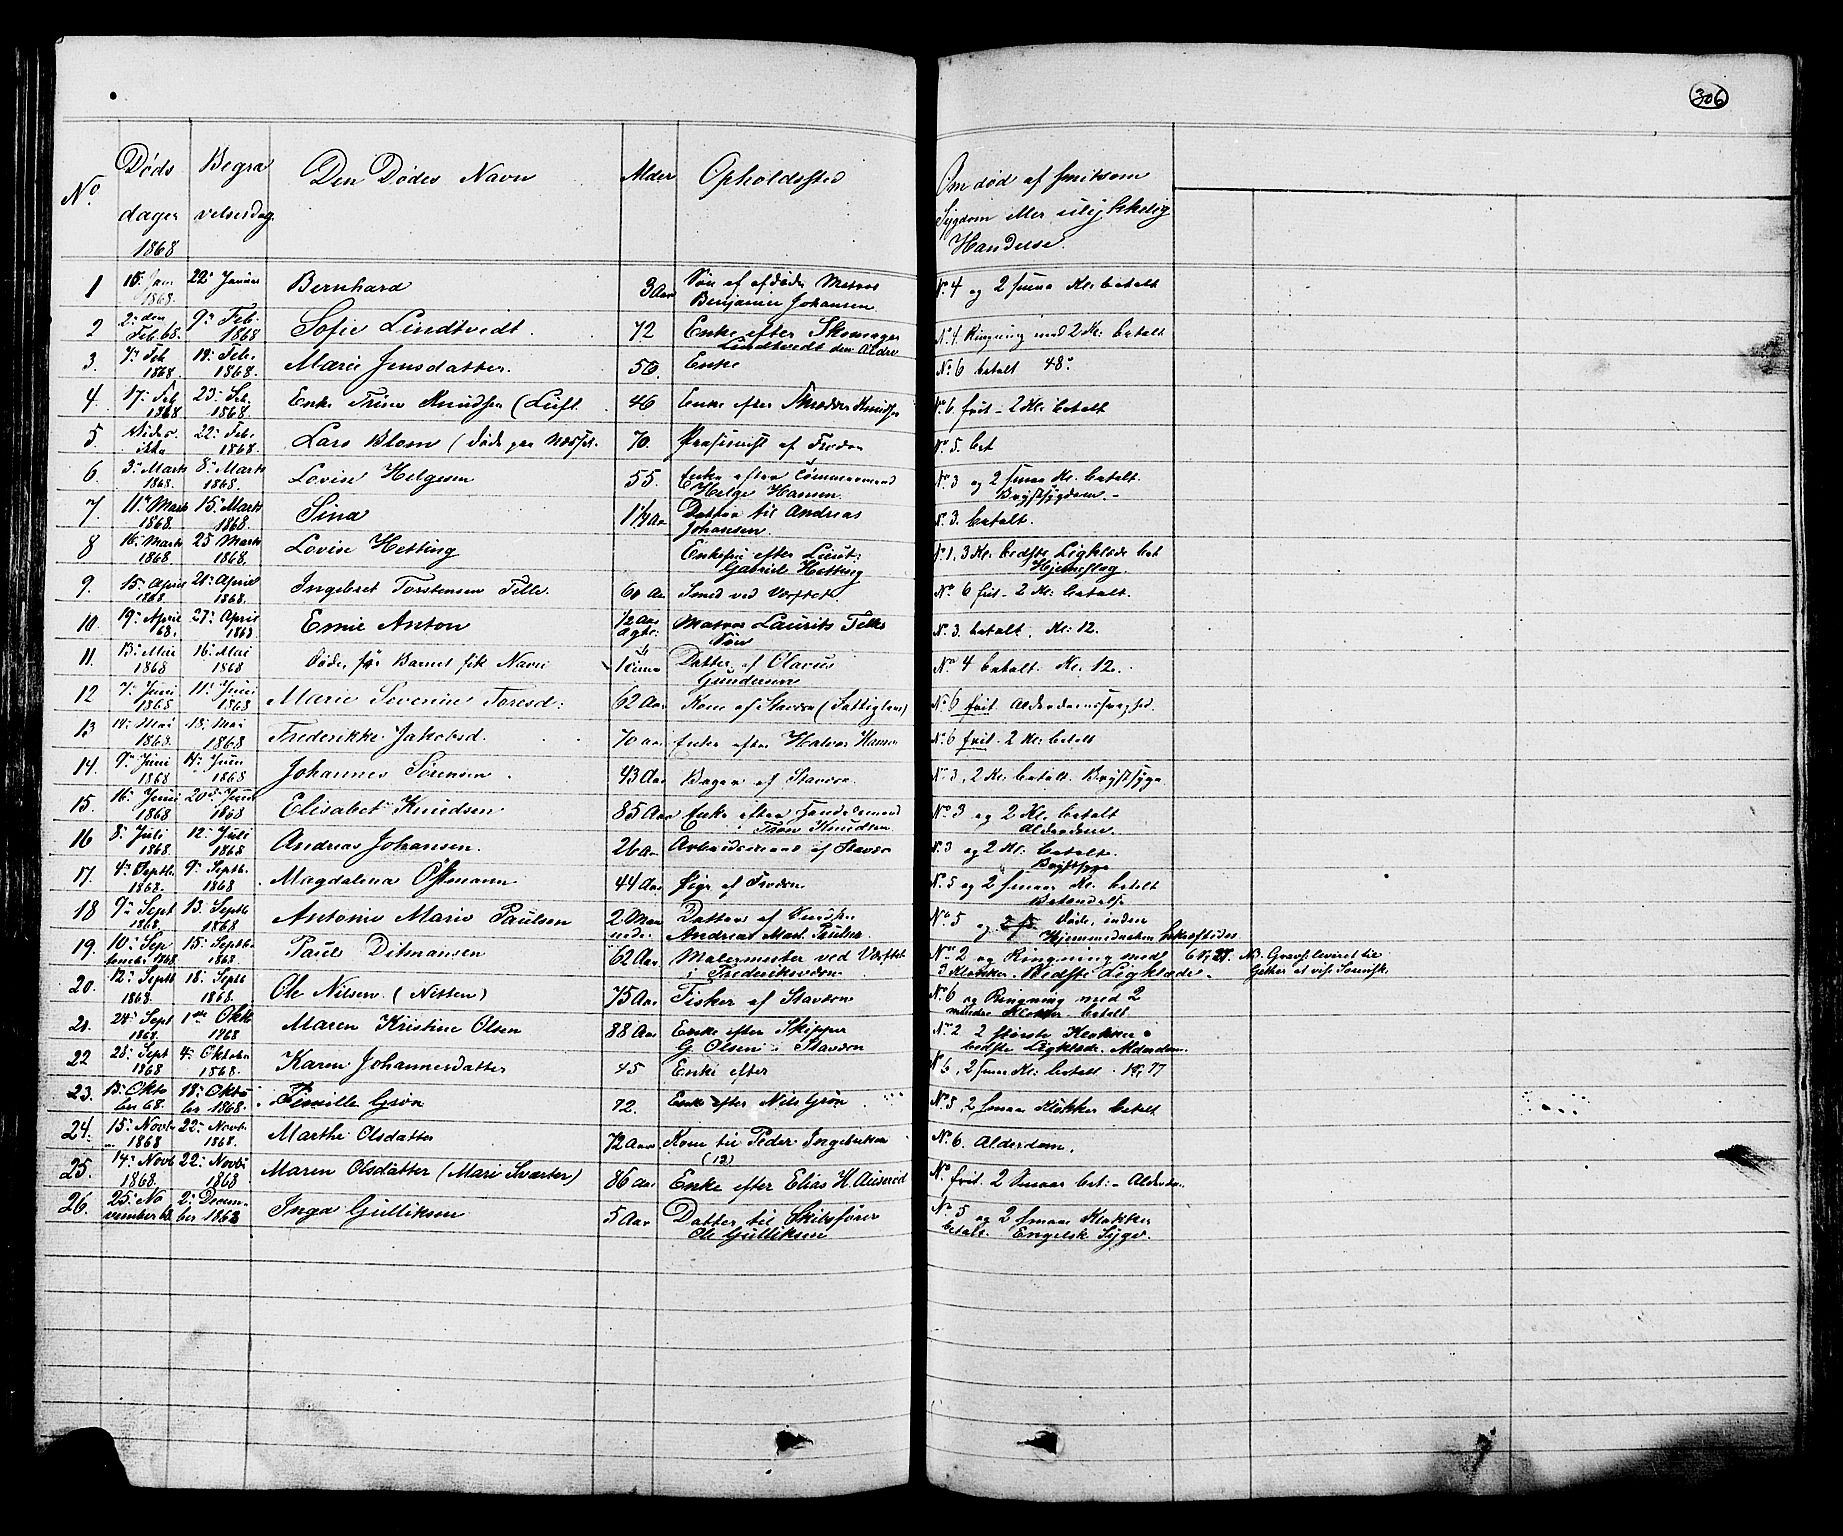 306
No Døds dager 1868 Begra velsesdag Den Dødes Navn Alder Opholdssted Om død af smitsom Sygdom eller ulykkelig Handelse.
1 18 Jan 1868. 22 Januar Bernhard 3 Aar Søn af afdøde Matros Benjamin Johansen No 4 og 2 smaa Kl: betalt
2 2 den Feb. 68. 9 Feb: 1868 Sofie Lindtvedt. 72 Enke efter Skomager Lindtvedt den Ældre No. 4. Ringning med 2 Kl: betalt
3. 7 Feb 1868. 12 Feb. 1868. Marie Jensdatter. 56. Enke No 6 betalt 48
4. 17 Feb 1868 23 Feb. 1868. Enke Trine Knudsen (Luft 46 Enke efter Knudsen No 6. frit - 2 Kl: betalt
5. 22 Feb. 1868. Lars Blom (døde paa 70. af No 5. bet
6. 3 Marts 1868. 8 Marts 1868. Lovise Helgesen 55. Enke efter Tømmermand Helge Hansen No 3 og 2 smaa Kl. betalt. Brystsygdom -
7. 11 Marts 1868. 15 Marts 1868. Sina 1 Aar Datter til Andreas Johansen. No 3. betalt.
8 16 Marts 1868. 25 Marts 1868. Lovise Hetting Enkefru efter Gabriel Hetting No 1, 3 Kl. bedste Ligklæde bet Hjerneslag
9. 15 April 1868. 21 April 1868. Ingebret Torstensen Telle. 60 Aar Smed ved Værftet No 6 frit - 2 Kl: betalt.
10. 19 April 68. 27 April 1868 Emil Anton 1/2 Aar Matros Laurits Telles Søn No 3. betalt. Kl: 12.
11. 13 Mai 1868 16 Mai 1868 Døde før Barnet fik Navn 1 Time Datter af Olavus Gundersen No 4 betalt. Kl. 12.
12 7 Juni 1868 11 Juni 1868 Marie Severine Toresd: 62 Aar Kone af Stavern (Fattiglem) No 6 frit. Alderdomssvaghed.
13 14 Mai 1868. 18 Mai 1868 Frederikke Jakobsd. 70 Aar Enke efter Halvor Hansen No 6 frit. 2 Kl: betalt
14. 9 Juni 1868 14 Juni 1868 Johannes Sørensen. 43 Aar Bager af Stavern No 3, 2 Kl: betalt. Brystsyge
15. 16 Juni 1868 20 Juni 1868 Elisabet Knudsen 85 Aar Enke efter Handelsmand Knudsen No 3 og 2 Kl. betalt Alderdom
16 8 Juli 1868. 12 Juli 1868 Andreas Johansen. 26 Aar Arbeidsmand af Stavern No 3 og 2 Kl: betalt. Brystsyge
17. 4 Septb. 1868. 9 Septb. 1868 Magdalena Østmann 44 Aar Pige af No 5 og 2 smaa Kl. betalt Betændelse
18 9 Sept 1868. 13 Septb 1868 Antonie Marie Paulsen 2 Maaneder. Datter af Andreas Mart. Paulsen. No 5 og Døde, inden Hjemmedaaben bekræftedes
19. 10 September 1868 15 Septb. 1868. Paul Ditmansen 62 Aar Malermester ved Værftet i Frederiksværn No 2 og Ringning med 3 Klokker. Bedste Ligklæde.
20. 12 Septb 1868 18 Septb 1868. Ole Nilsen (Nitten) 75 Aar Fisker af Stavern No 6 og Ringning med 2 mindre Klokker. betalt.
21. 24 Sept 1868. 1ste Okt 1868 Maren Kristine Olsen 88 Aar Enke efter Skipper G. Olsen i Stavern No 2 2 største Klokker bedste Ligklæde. Alderdom.
22 28 Sept 1868 4 Oktober 1868. Karen Johannesdatter 45 Enke efter No 6, 2 smaa Kl: betalt
23. 13 Oktober 68. 18 Oktober 1868. Grøn 72. Enke efter Nils Grøn No 5, 2 smaa Klokker betalt
24. 15 Novb 1868 22 Novb. 1868. Marthe Olsdatter 72 Aar Kone til Peder Ingebretsen (12) No 6. Alderdom.
25. 14 Novb 1868. 22 Novb 1868 Maren Olsdatter (Mari Svarter) 86 Aar Enke efter Elias H. No frit. 2 Smaa bet: - Alderdom.
26. 25 November 68. 2 December 1868 Inga Gulliksen 5 Aar Datter til Skibsfører Ole Gulliksen No 5 og 2 smaa Klokker betalt. Engelsk Syge.